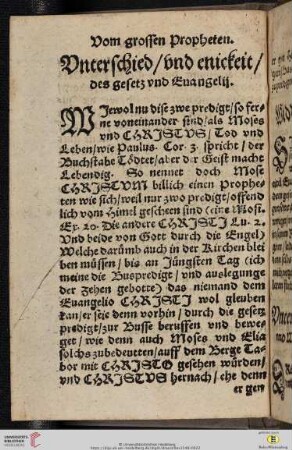 Vom grossen Propheten.
Vnterschied/vnd enickeit/
des gesetz vnd Euangelij.
WJewol nu dise zwe predigt/so fer-
ne voneinander sind/als Moses
vnd CHRISTVS/Tod vnd
Leben/wie Paulus. Cor. 3. spricht/der
Buchstabe Tödtet/aber der Geist macht
Lebendig. So nennet doch Mose
CHRISTVM billich einen Prophe-
ten wie sich/weil nur zwo predigt/offend
lich vom Himel gescheen sind (eine Mosi.
Ex. 20. Die andere CHRISTI Lu. 2.
Vnd beide von Gott durch die Engel)
Welche darümb auch in der Kirchen blei
ben müssen/bis an Jüngsten Tag (ich
meine die Buspredigt/vnd auslegunge
der Zehen gebotte) das niemand dem
Euangelio CHRISTJ wol gleuben
kan/er seie denn vorhin/durch die gesetz
predigt/zur Busse beruffen vnd bewe-
get/wie denn auch Moses vnd Elia
solchs zubedeutten/auff dem Berge Ta-
bor mit CHRISTO gesehen würden/
vnd CHRISTVS hernach/ehe denn
er gen
UNIVERSITÄTS-
BIBLIOTHEK
HEIDELBERG
© Universitätsbibliothek Heidelberg